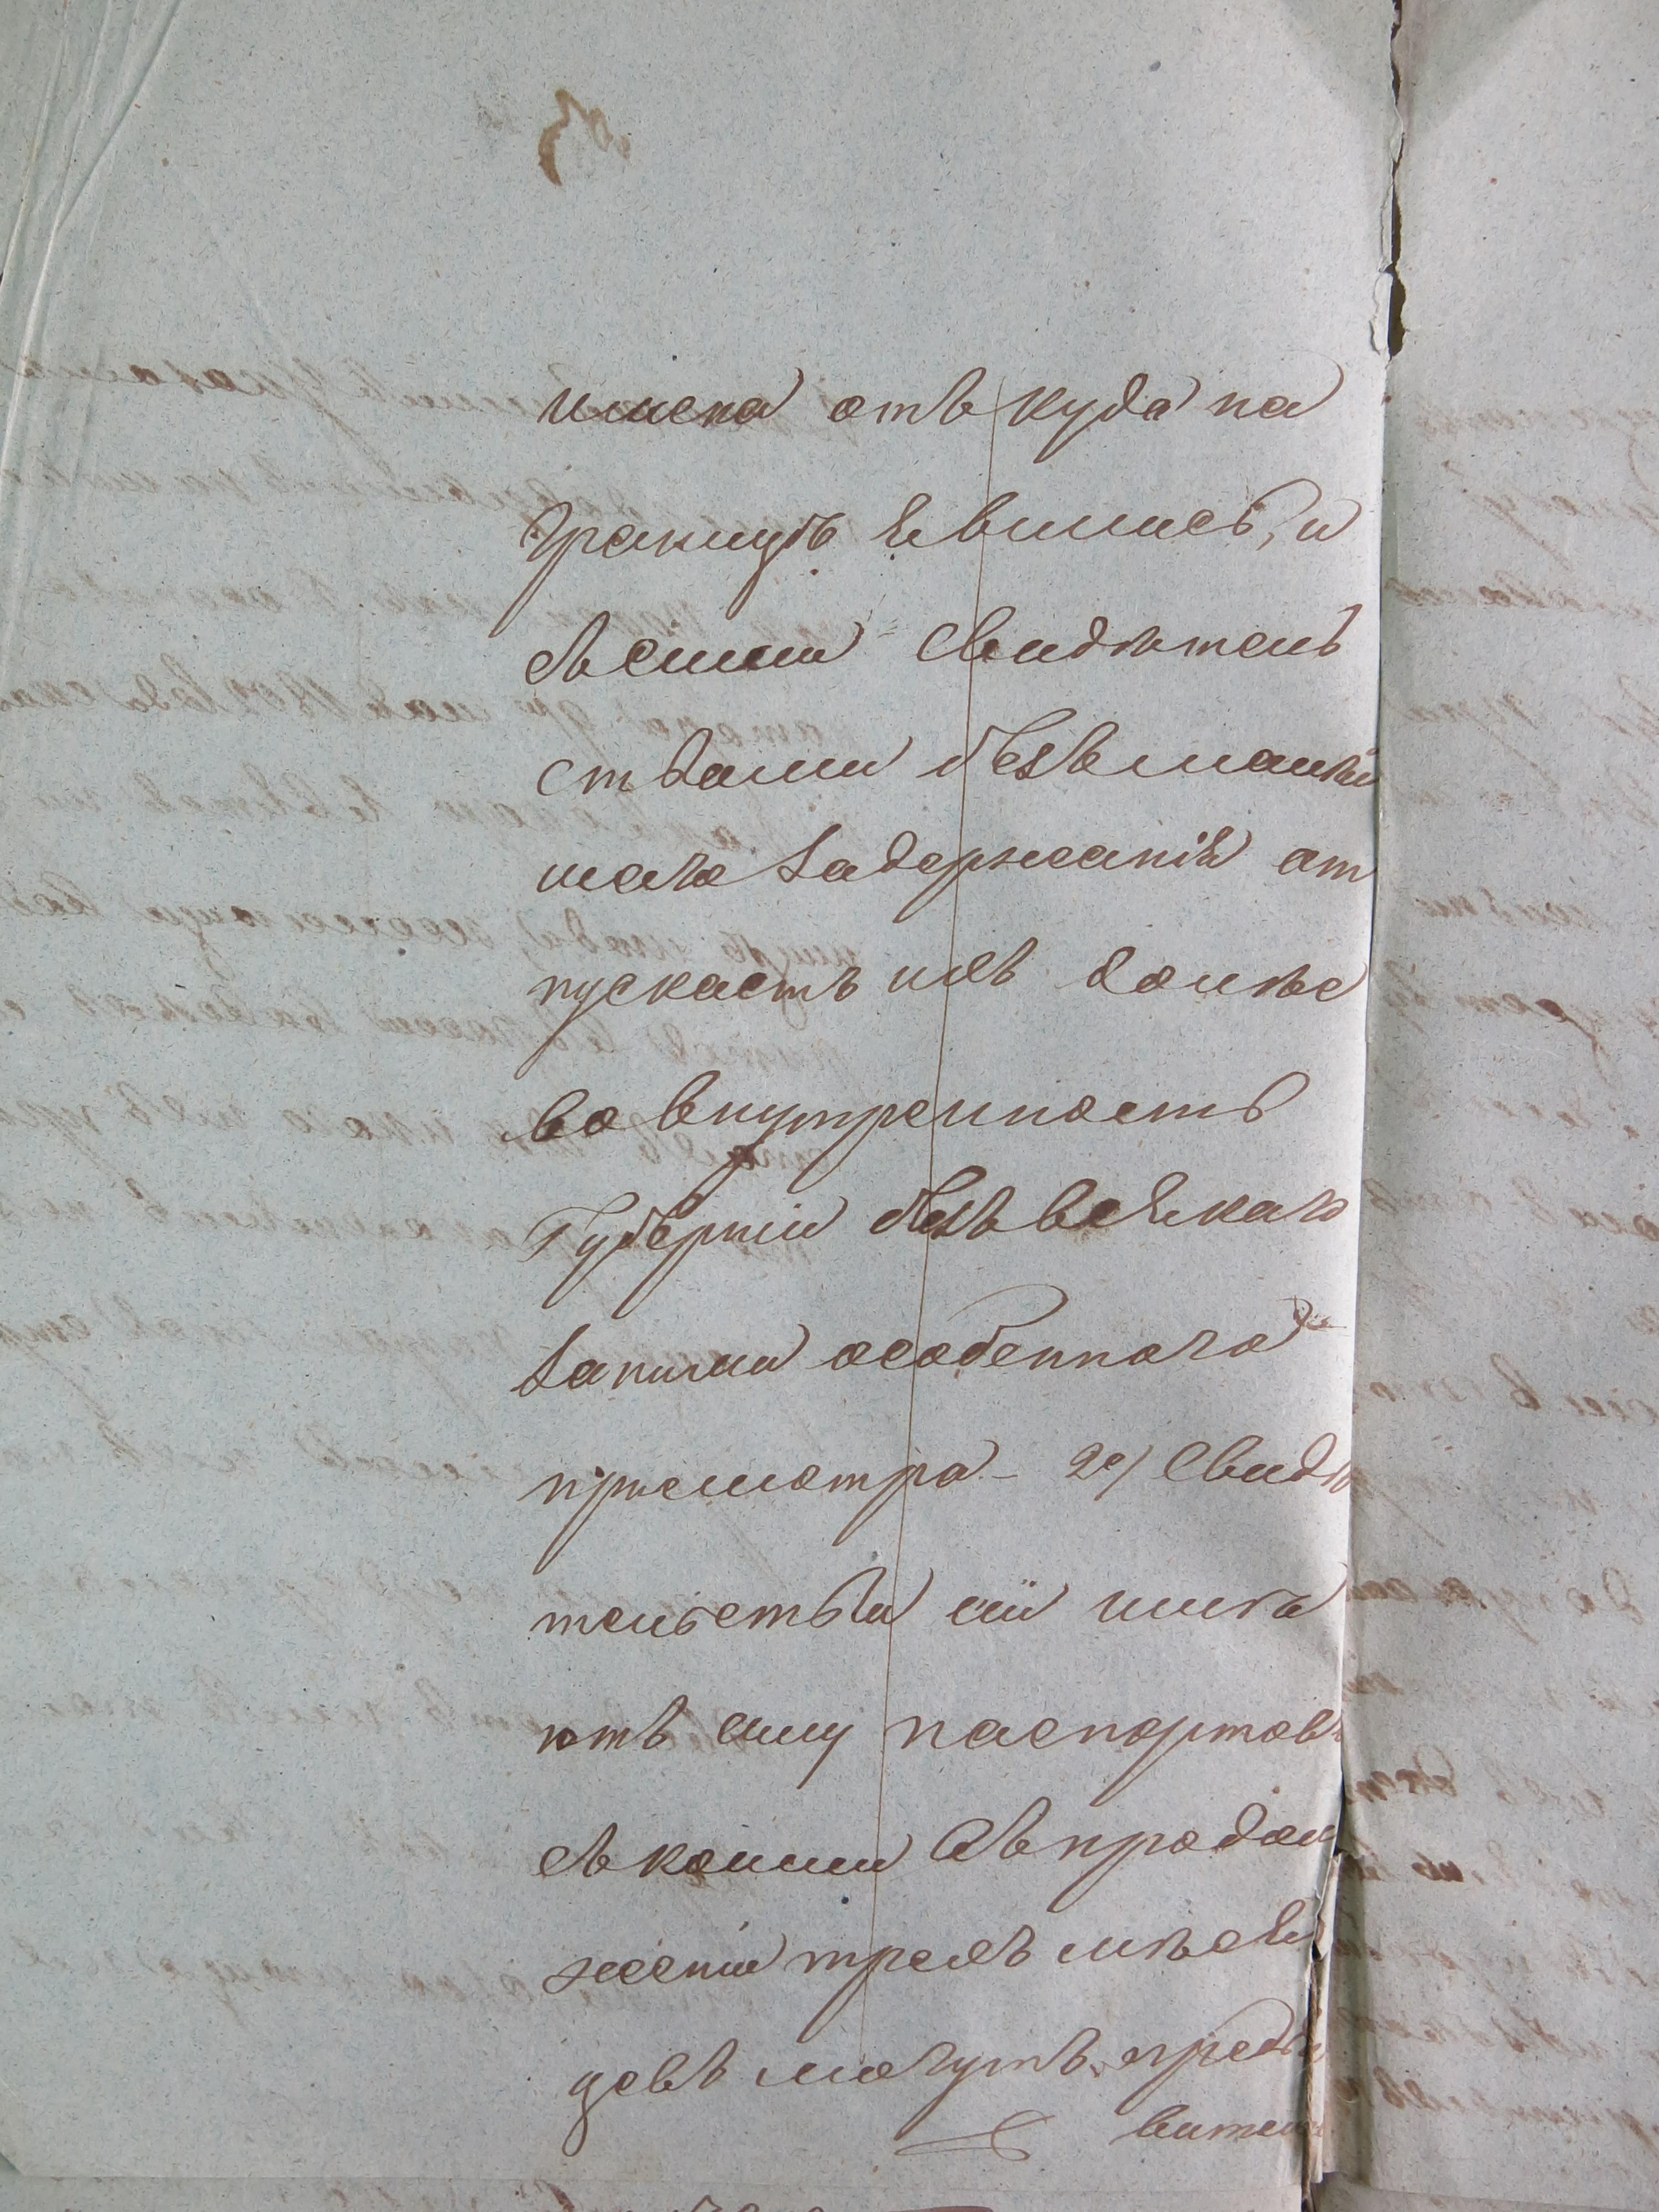 имена отъ куда на
границѣ явились, и
съ сими свидѣтель
ствами безъ малѣй
шаго задержанія от
пускаетъ ихъ далѣе
во внутренность
Губерніи безъ всякаго
за ними особеннаго
присмотра - 2е/ Свидѣ
тельствы сіи имѣ
ютъ силу паспортовъ
съ коими въ продол
женіи трехъ мѣся
цовъ могутъ предъя
вители